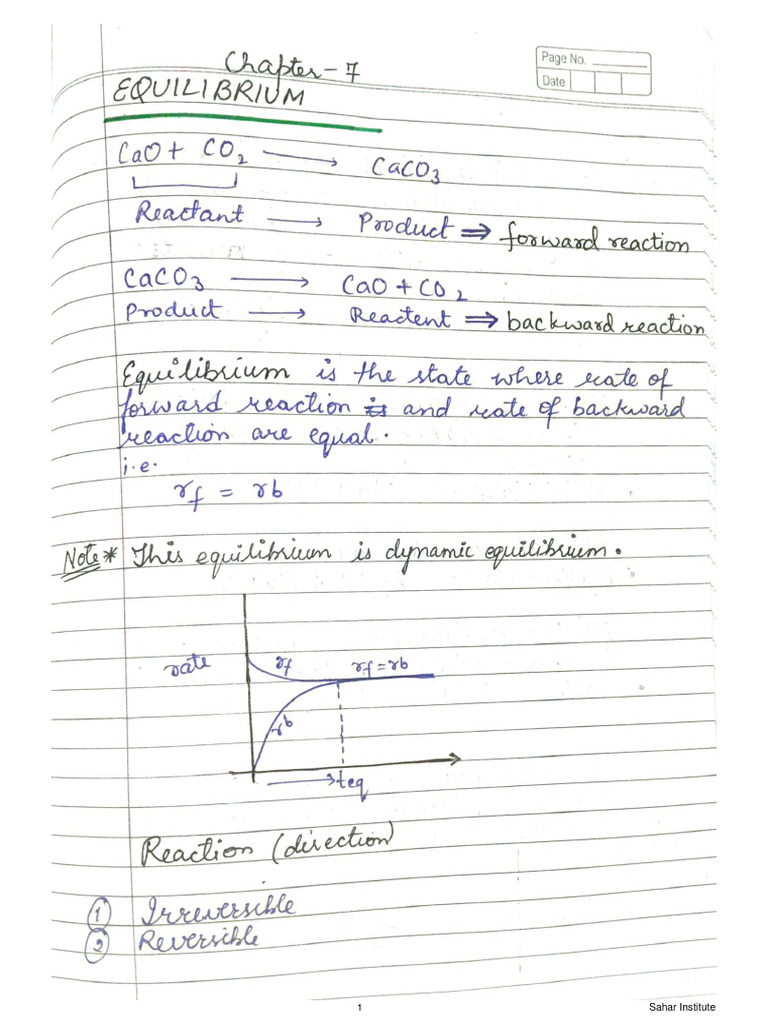 Chapter-7
Page No.
EQUILIBRIUM
Date
CaO + CO2 → CaCO3
Reactant → Product ⇒ forward reaction
CaCO3 → CaO + CO2
Product → Reactent ⇒ backward reaction
Equilibrium is the state where rate of
forward reaction is and rate of backward
reaction are equal.
i.e.
rf = rb
Note* This equilibrium is dynamic equilibrium.
rate rf rf = rb
rb
→ teq
Reaction (direction)
1 Irreversible
2 Reversible
1 Sahar Institute